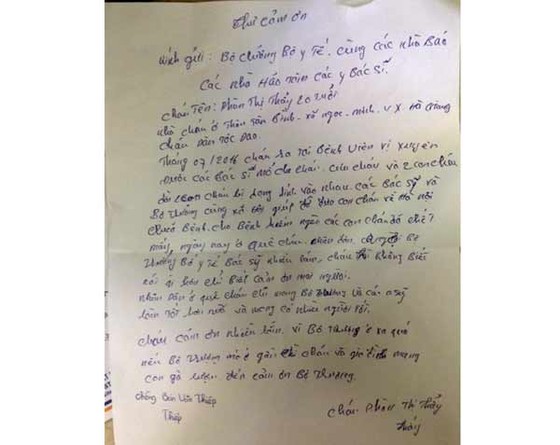 Thư cảm ơn
Kính gửi: Bộ trưởng Bộ y Tế. cùng các nhà Báo
Các nhà Hảo tâm các y Bác Sĩ.
Cháu Tên: Phàn Thị Thảy 20 tuổi
nhà cháu ở Thôn Tân Bình - xã ngọc - minh. V X. Hà Giang
cháu Dân Tộc Dao.
Tháng 07/2016 cháu ra tại Bệnh Viện vị xuyên
Được các Bác Sĩ mổ cho cháu. cứu cháu và 2 con cháu
con cháu bị dính vào nhau. các Bác Sỹ và
Bộ trưởng cùng xã hội giúp đỡ đưa con cháu về Hà Nội
chữa Bệnh. cho Bệnh hiểm nghèo các con cháu đã chết
mấy ngày nay ở quê cháu. nhân dân
trưởng Bộ y Tế Bác sỹ nhiều lắm, cháu không biết
nói gì hơn chỉ biết cảm ơn mọi người.
nhân dân ở quê cháu chỉ mong Bộ trưởng và các y sỹ
làm tốt hơn nữa và mong có nhiều người tốt.
cháu cảm ơn nhiều lắm. vì Bộ trưởng ở xa quá
nếu Bộ trưởng mà ở gần thì cháu và gia đình mang
con gà rượu đến cảm ơn Bộ trưởng.
chồng Bàn Văn Thiếp
Thiếp
cháu Phàn Thị Thảy
Thảy